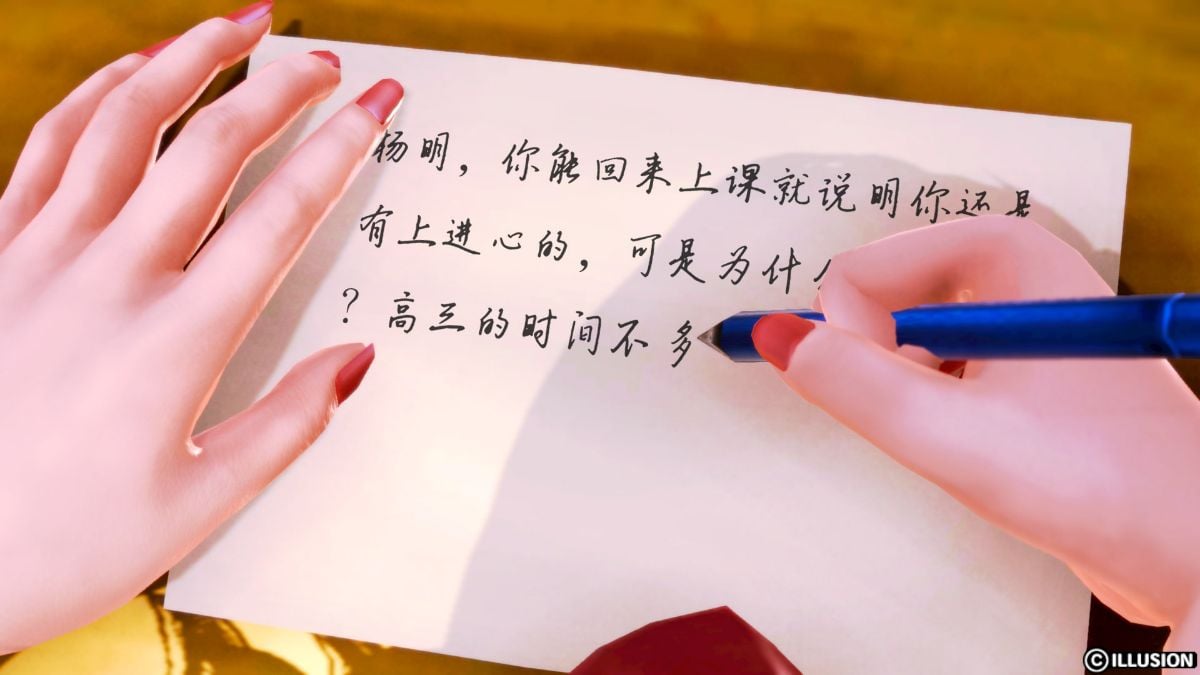 杨明，你能回来上课就说明你还是
有上进心的，可是为什
？高三的时间不多
©ILLUSION